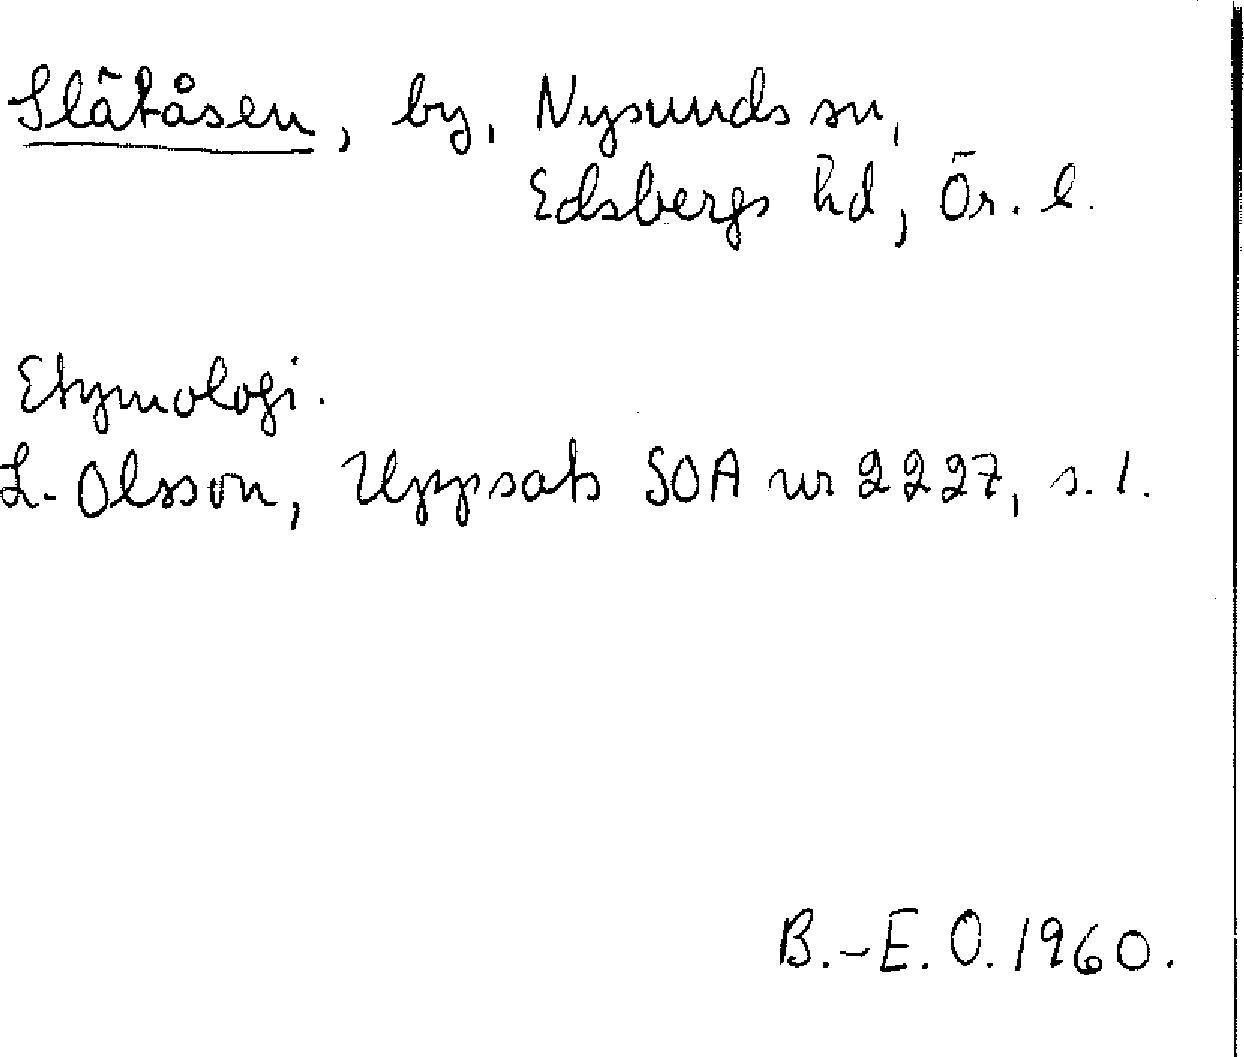 Slätåsen, by, Nysunds sn,
Edsbergs hd, Ör. l.
Etymologi.
L. Olsson, Uppsats SOA nr 2227, s. 1.
B.-E. O. 1960.